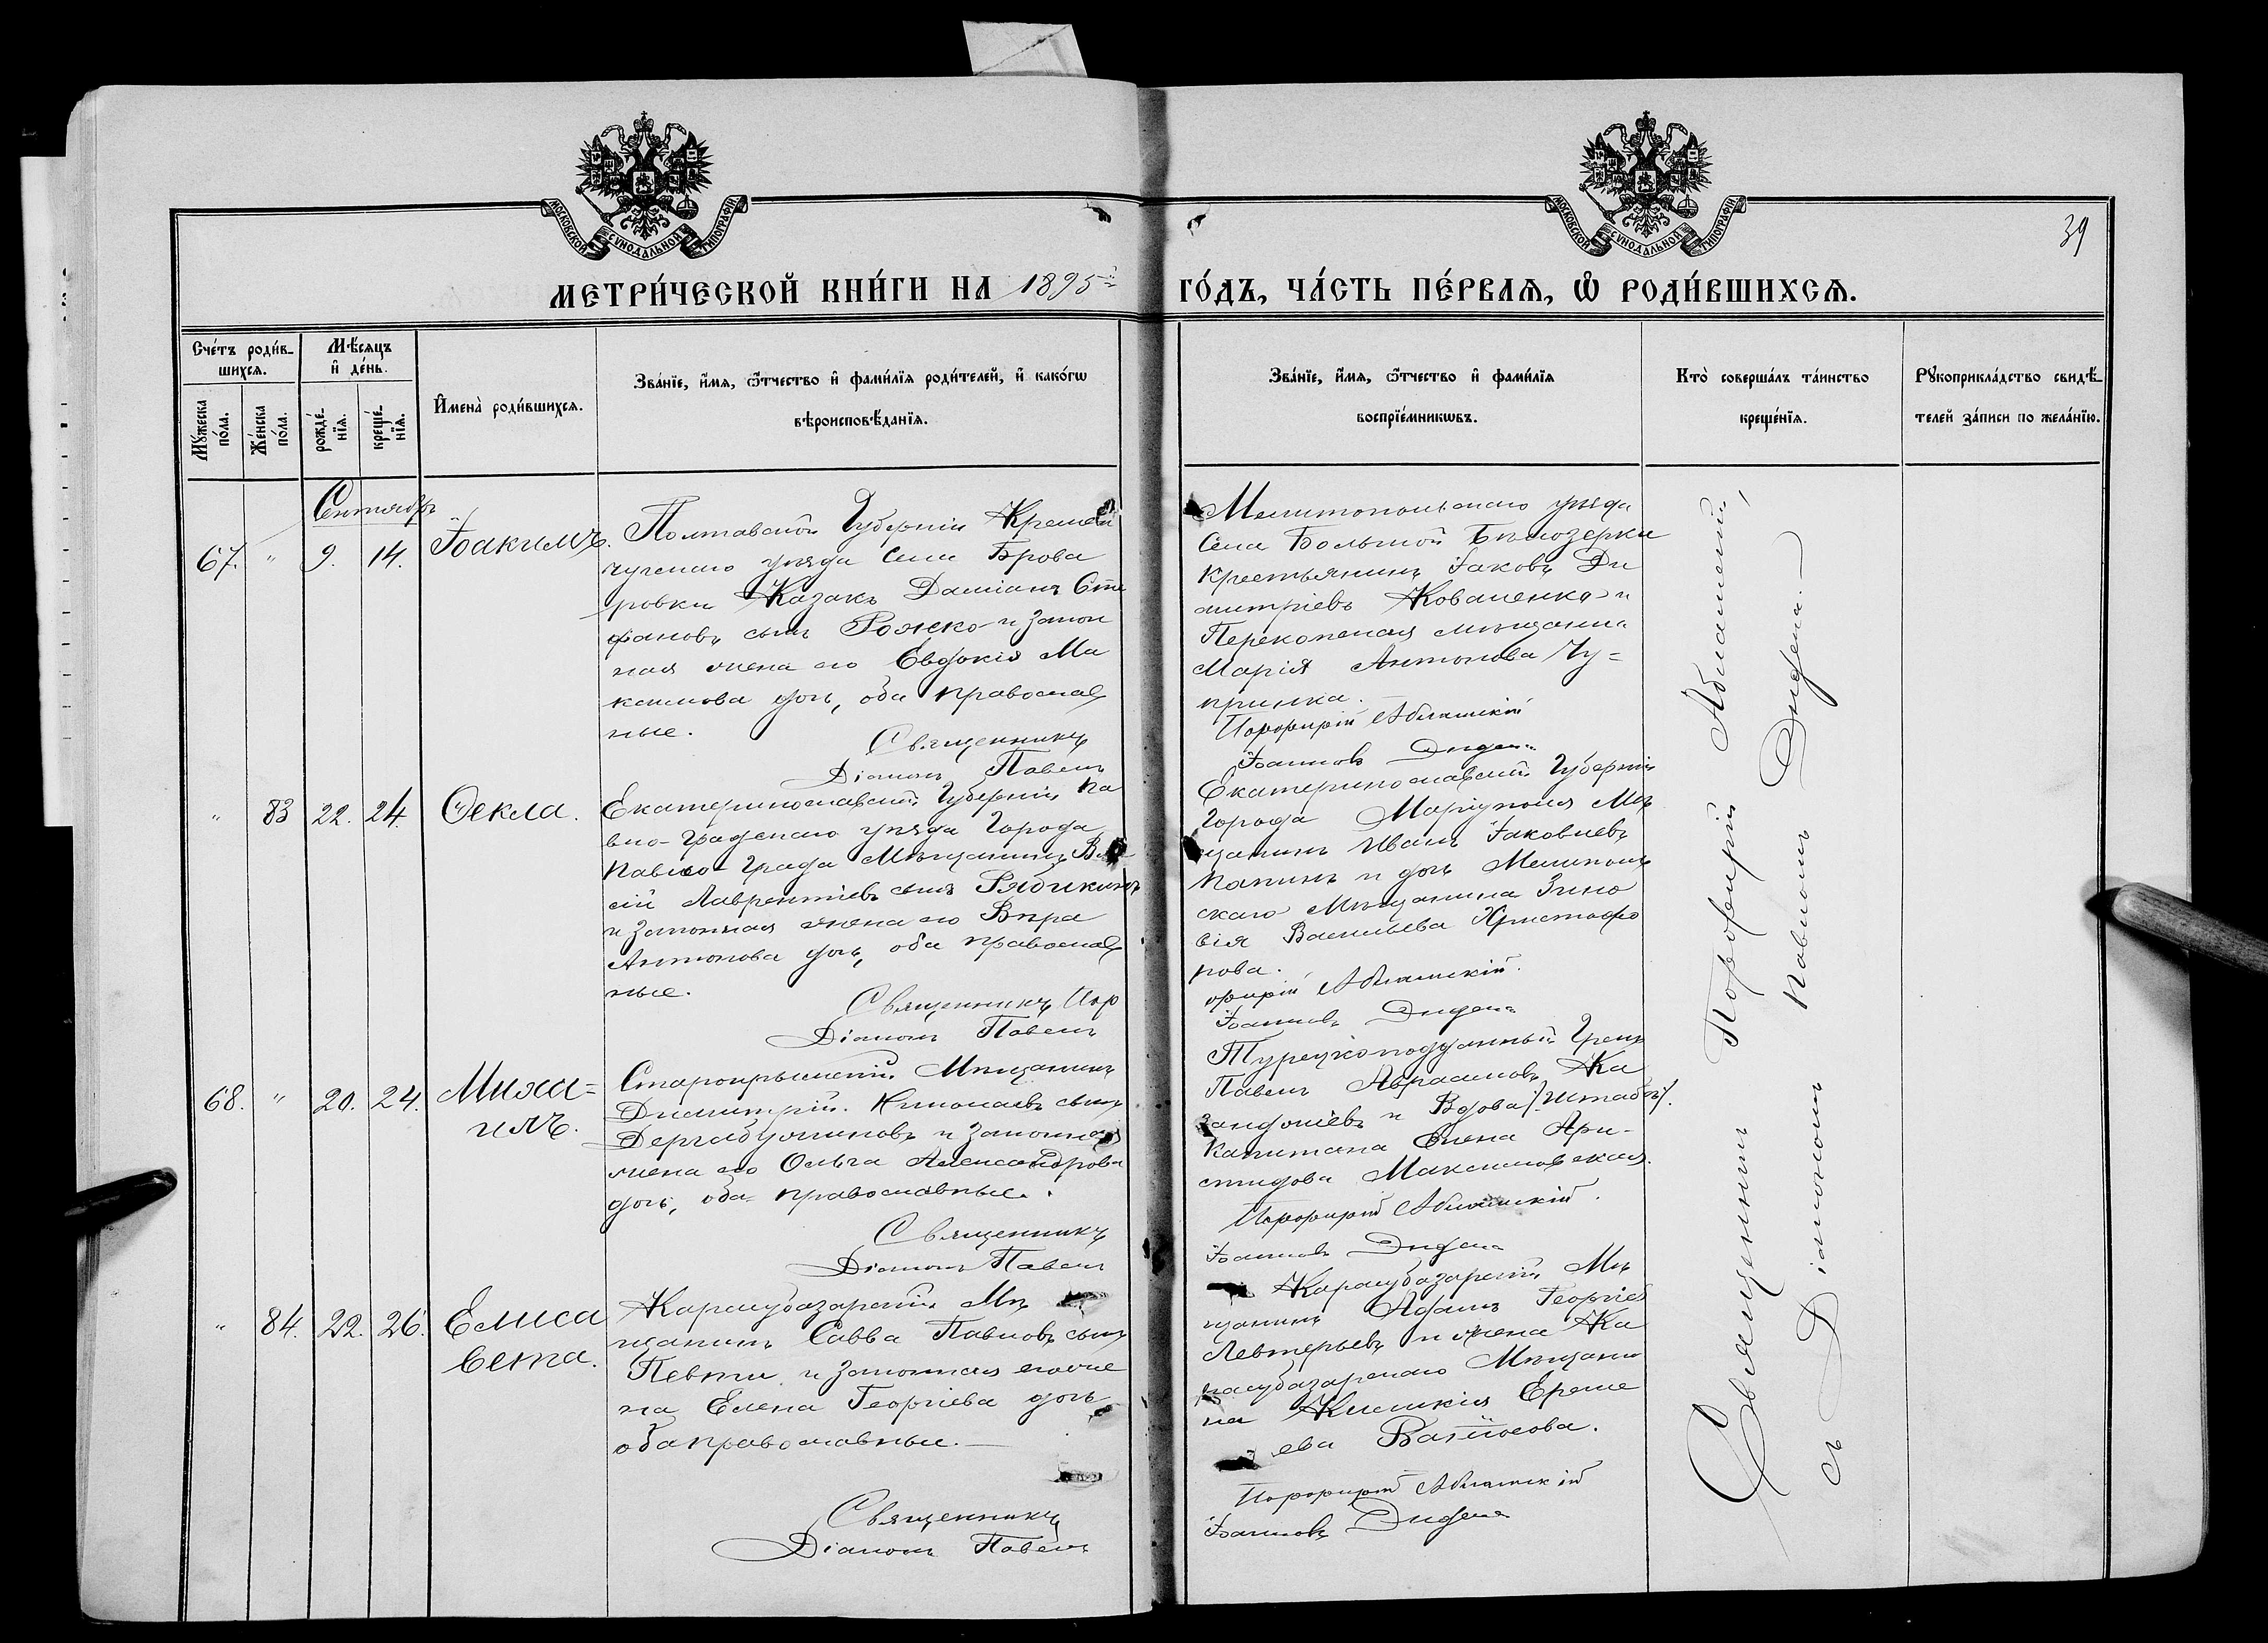 39
МОСКОВСКОЙ СѴНОДАЛЬНОЙ ТИПОГРАФІИ
МОСКОВСКОЙ СѴНОДАЛЬНОЙ ТИПОГРАФІИ
МЕТРИ́ЧЕСКОЙ КНИ́ГИ НА 1895й ГО́ДЪ, ЧА́СТЬ ПЕ́РВАѦ, Ѡ҆ РОДИ́ВШИХСѦ.
Сче́тъ роди́в-
шихсѧ.
Мꙋ́жеска по́ла.
Же́нска по́ла.
Мѣ́сѧцъ
и҆ де́нь.
рожде́нїѧ.
креще́нїѧ.
И҆мена̀ роди́вшихсѧ.
Зва́нїе, и҆́мѧ, ѻ҆́тчество и҆ фами́лїѧ роди́телей, и҆ како́гѡ
вѣроисповѣ́данїѧ.
Зва́нїе, и҆́мѧ, ѻ҆́тчество и҆ фами́лїѧ
воспрїе́мникѡвъ.
Кто̀ соверша́лъ та́инство
креще́нїѧ.
Рꙋкоприкла́дство свидѣ́-
телей за́писи по жела́нїю.
Сентябрь
67. " 9. 14. Іоакимъ.
Полтавской Губерніи Кремен
чугскаго уѣзда села Брова
ровки Казакъ Даміанъ Сте
фановъ сынъ Рожко и закон
ная жена его Евдокія Ма
ксимова дочь, оба православ
ные.
Священникъ
Діаконъ Павелъ
Мелитопольскаго уѣзда
Села Большой Бѣлозерки
Крестьянинъ Іаковъ Ди
митріевъ Коваленко и
Перекопская мѣщанка
Марія Антонова Чу=
прилка.
Порфирій Абламскій
Іоанновъ Дидена
" 83 22. 24. Ѳекла.
Екатеринославской Губерніи Па
вло-Градскаго уѣзда Города
Павло-Града Мѣщанинъ
сій Лаврентіевъ сынъ Рябикинъ
и Законная жена его Вѣра
Антонова дочь, оба православ
ные.
Священникъ Пор
Діаконъ Павелъ
Екатеринославской Губерніи
Города Маріуполя Мѣ
щанинъ Иванъ Іаковлевъ
Папинъ и дочь Мелитопль
скаго Мѣщанина Зино
вія Васильева Христофо
рова.
фирій Абламскій.
Іоанновъ Дидена
68. " 20. 24. Миха=
илъ.
Старокрымскій Мѣщанинъ
Димитрій Николаевъ сынъ
и Законная
жена его Ольга Александрова
дочь, оба православные.
Священникъ
Діаконъ Павелъ
Турецкоподданный Грекъ
Павелъ Авраамовъ Ка
и Вдова /:Штабсъ:/
Капитана Елена Ари-
стидова Максимовская.
Порфирій Абламскій.
Іоанновъ Дидена
" 84. 22. 26. Елиса
вета.
Карасубазарскій Мѣ
щанинъ Савва Павловъ сынъ
Певти и Законная его же
на Елена Георгіева дочь
оба православные.
Священникъ
Діаконъ Павелъ
Карасубазарскій Мѣ
щанинъ Адамъ Георгіев
Левтерьевъ и жена Ка
расубазарскаго Мѣщани
на Ереме
ева
Порфирій Абламскій
Іоанновъ Дидена
Священникъ Порфирій Абламскій,
съ Діакономъ Павломъ Дидена.